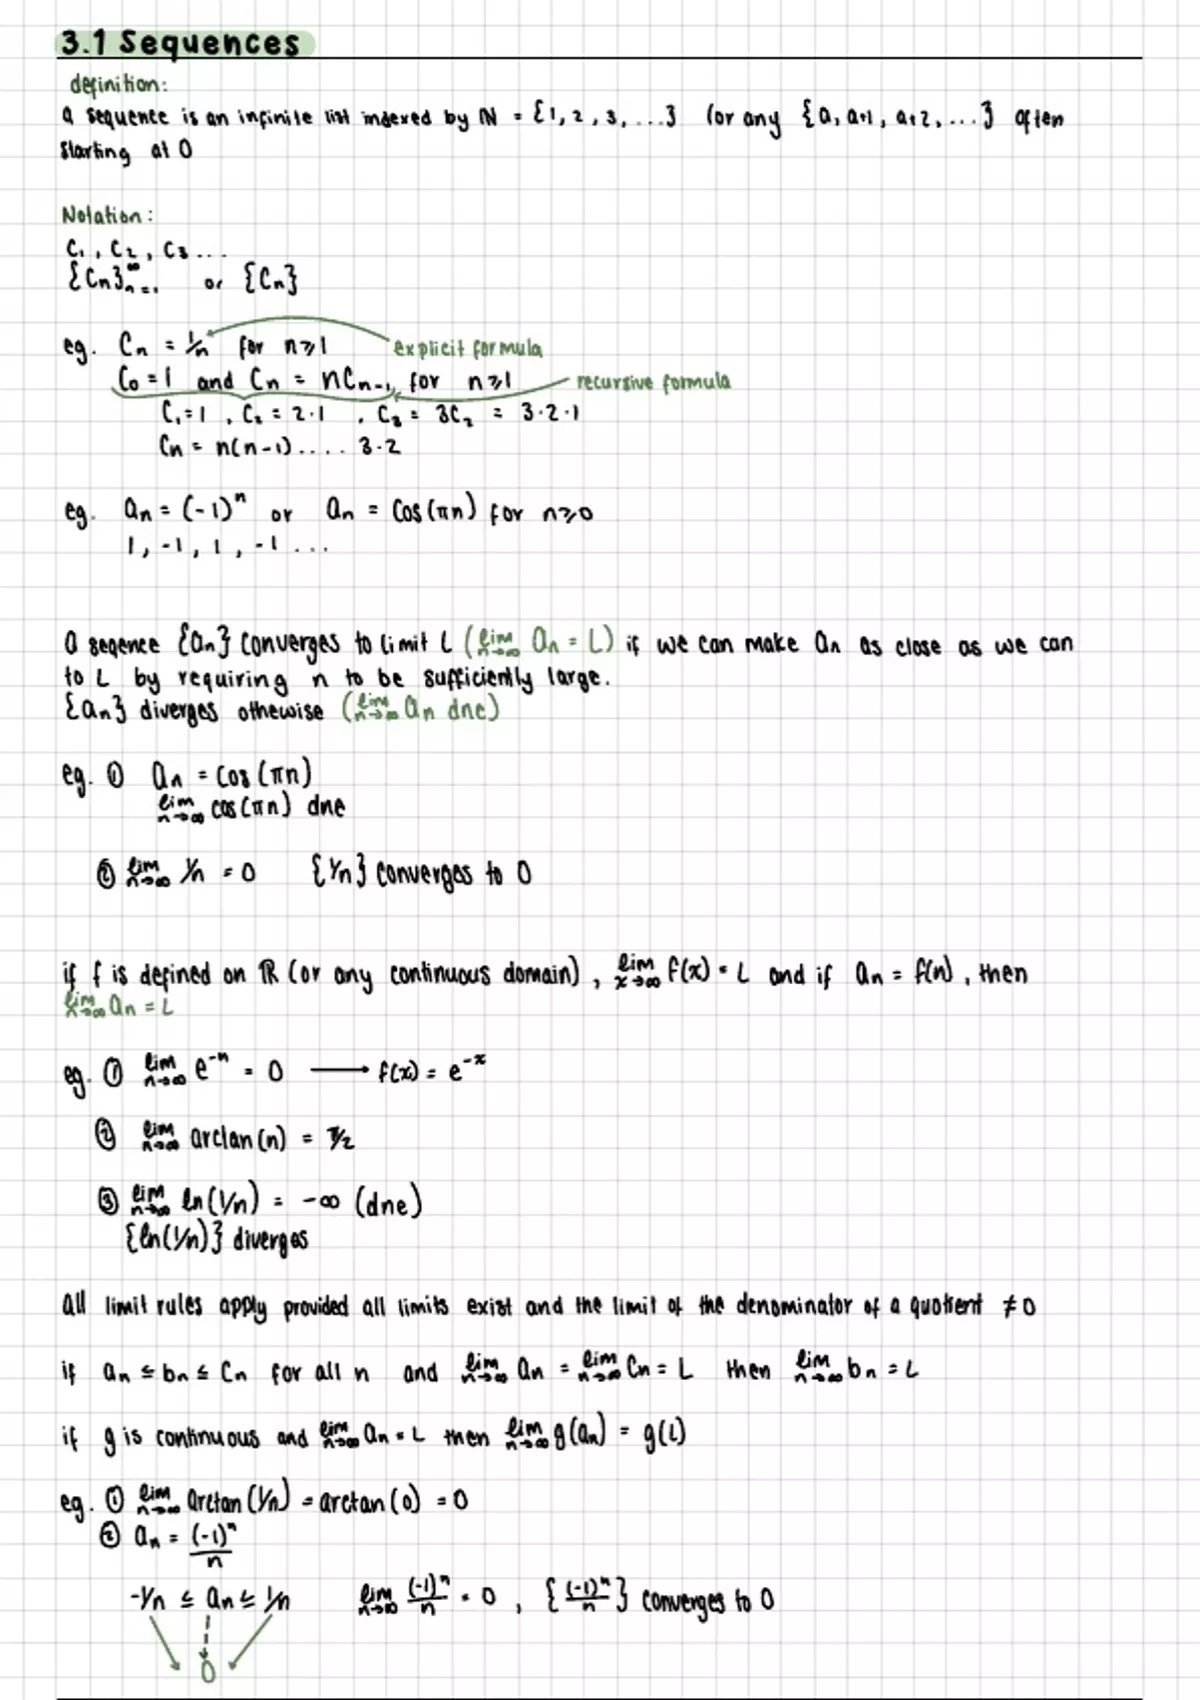 3.1 Sequences
definition:
a sequence is an infinite list indexed by ℕ = {1, 2, 3, ...} (or any {a, a+1, a+2, ...} often
starting at 0
Notation:
C₁, C₂, C₃ ...
{Cn}^∞ n=1 or {Cn}
eg. Cn = 1/n for n≥1 explicit formula
C₀ = 1 and Cn = nCn-1, for n≥1 recursive formula
C₁ = 1, C₂ = 2·1, C₃ = 3C₂ = 3·2·1
Cn = n(n-1).... 3·2
eg. an = (-1)ⁿ or an = cos(πn) for n≥0
1, -1, 1, -1 ...
a seqence {an} converges to limit L (lim n→∞ an = L) if we can make an as close as we can
to L by requiring n to be sufficiently large.
{an} diverges othewise (lim n→∞ an dne)
eg. ① an = cos(πn)
lim n→∞ cos(πn) dne
② lim n→∞ 1/n = 0 {1/n} converges to 0
if f is defined on ℝ (or any continuous domain), lim x→∞ f(x) = L and if an = f(n), then
lim x→∞ an = L
eg. ① lim n→∞ e⁻ⁿ = 0 ⟶ f(x) = e⁻ˣ
② lim n→∞ arctan(n) = π/2
③ lim n→∞ ln(1/n) = -∞ (dne)
{ln(1/n)} diverges
all limit rules apply provided all limits exist and the limit of the denominator of a quotient ≠ 0
if an ≤ bn ≤ Cn for all n and lim n→∞ an = lim n→∞ Cn = L then lim n→∞ bn = L
if g is continuous and lim n→∞ an = L then lim n→∞ g(an) = g(L)
eg. ① lim n→∞ arctan(1/n) = arctan(0) = 0
② an = (-1)ⁿ/n
-1/n ≤ an ≤ 1/n lim n→∞ (-1)ⁿ/n = 0, {(-1)ⁿ/n} converges to 0
0